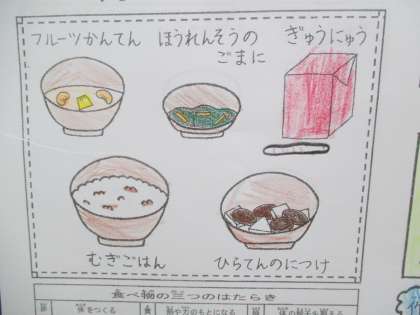 フルーツかんてん
ほうれんそうの
ごまに
ぎゅうにゅう
むぎごはん
ひらてんのにつけ
食べ物の三つのはたらき
体をつくる
熱や力のもとになる